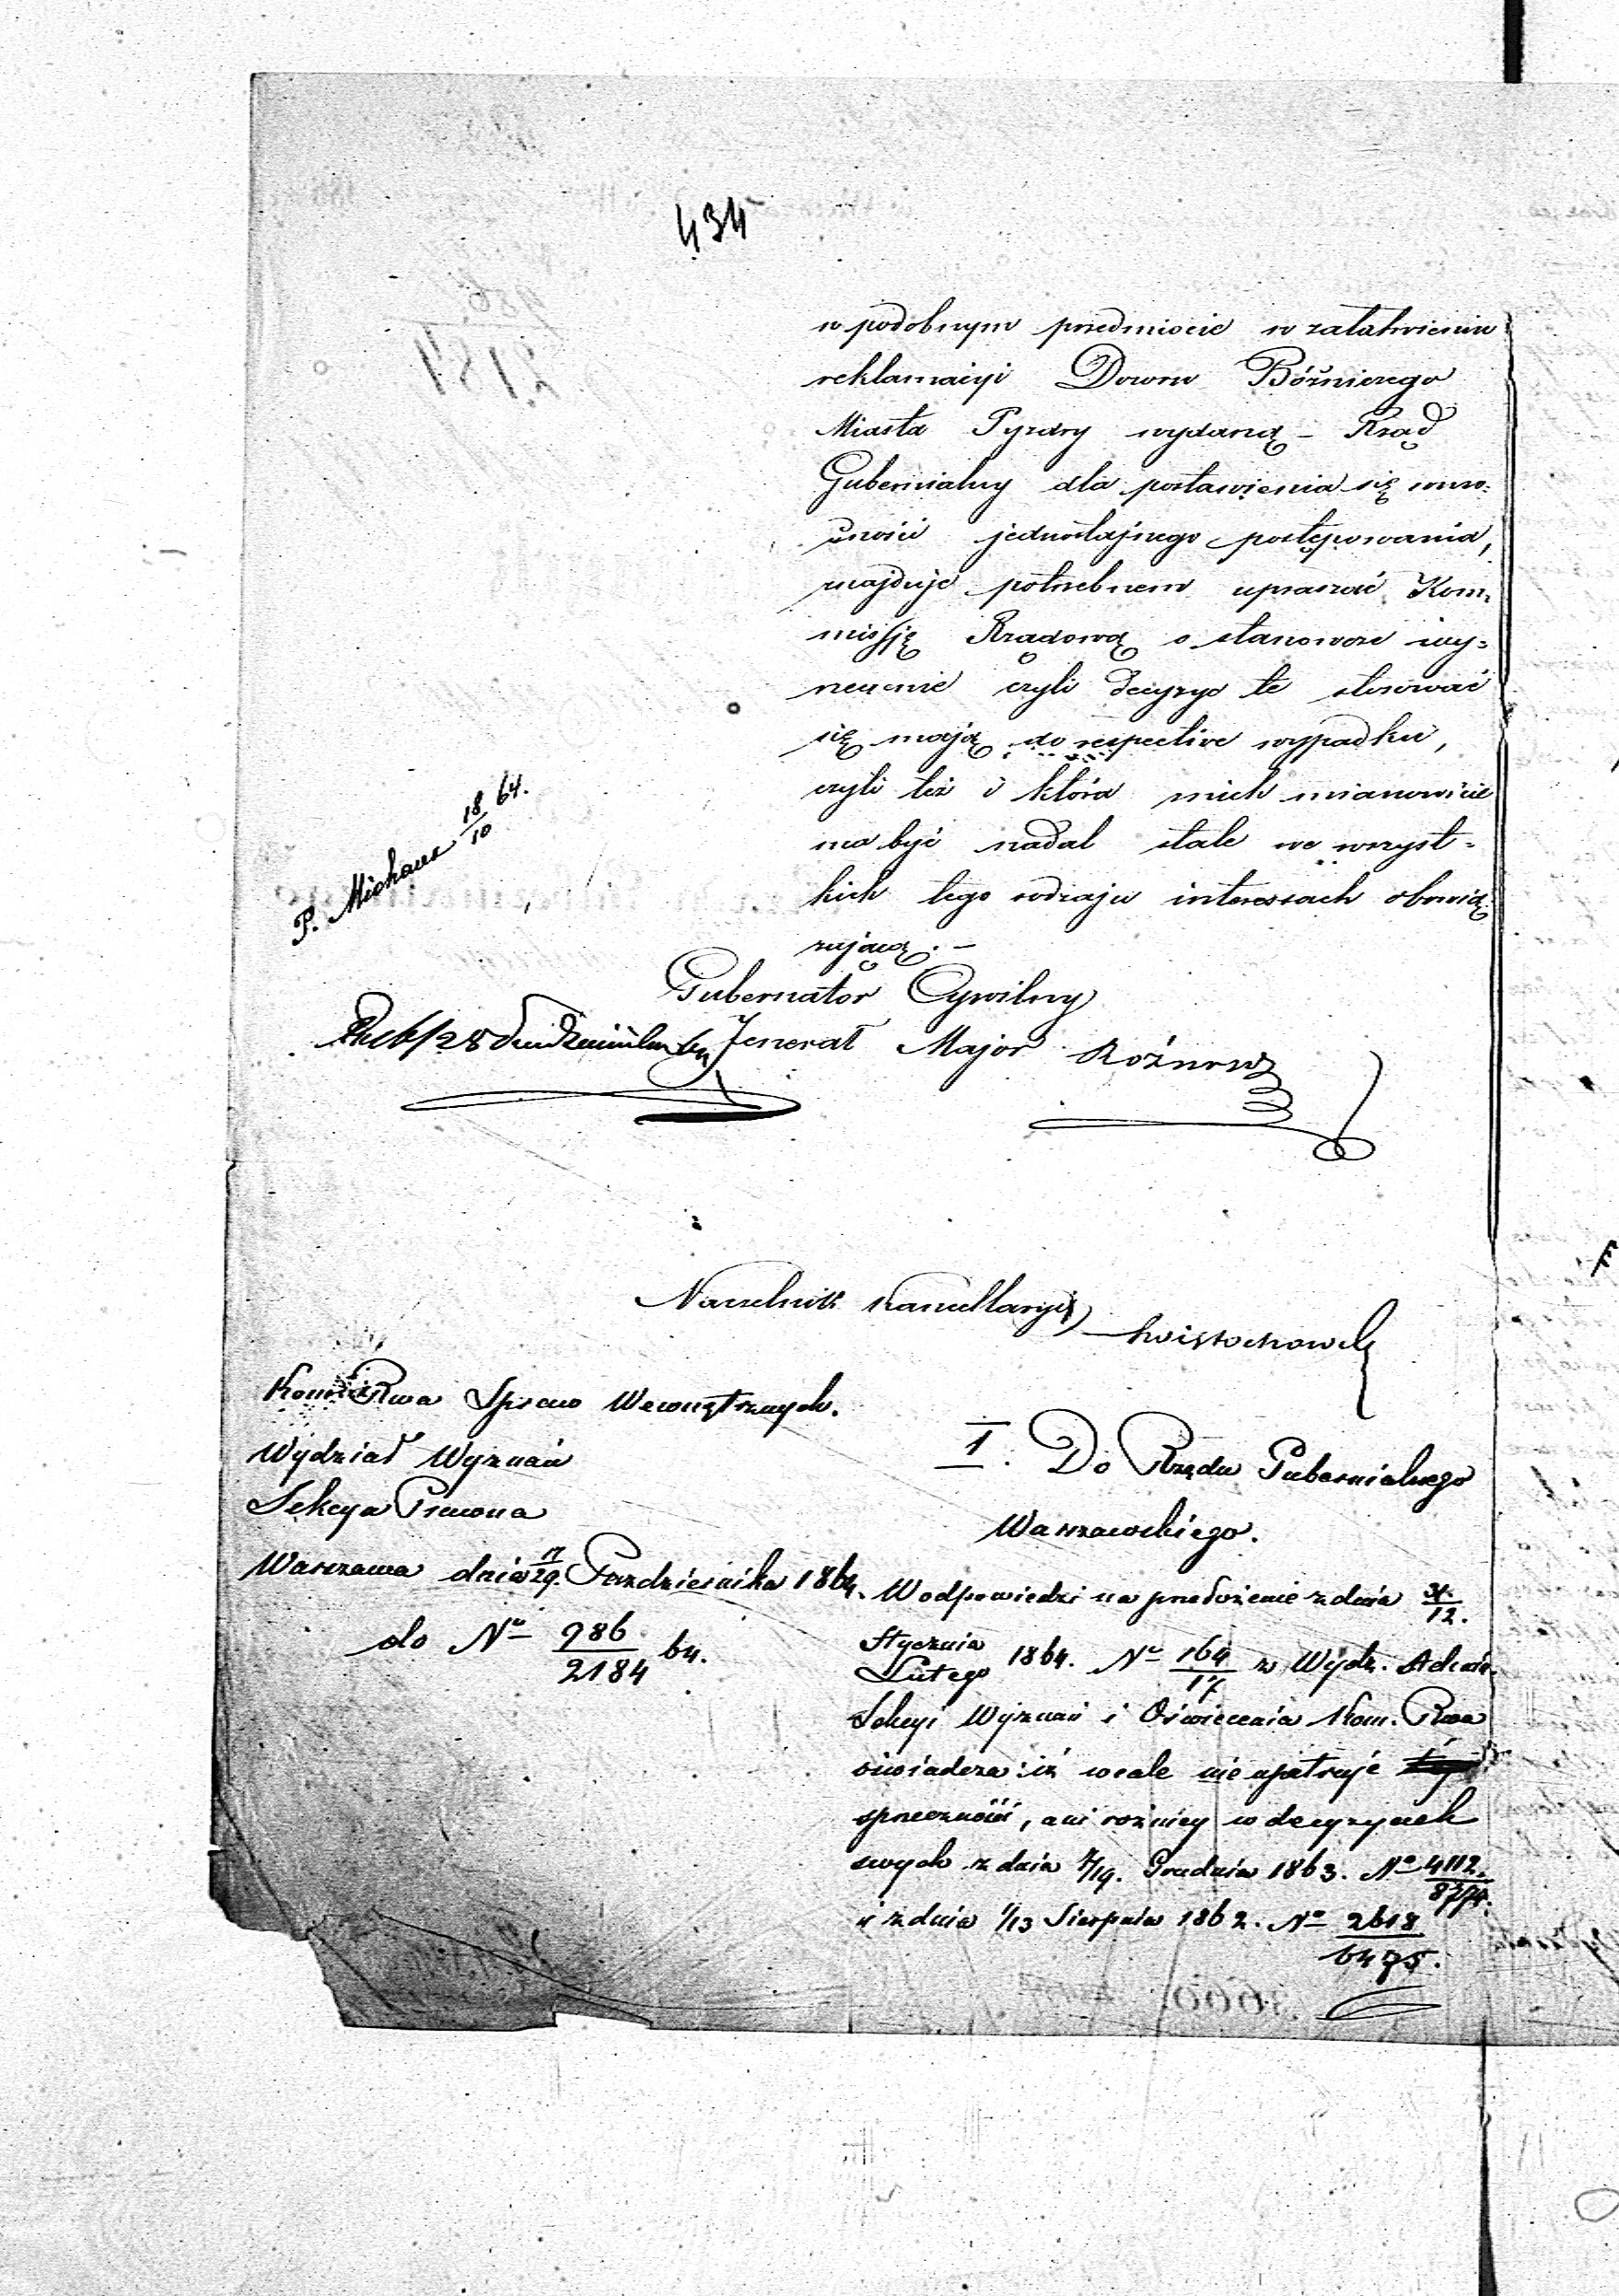 434
w podobnym przedmiocie w załatwieniu
reklamacyi Dozoru Bóźniczego
Miasta Pyzdry wydaną – Rząd
Gubernialny dla postawienia się w mo-
żności jednostajnego postępowania,
znajduje potrzebnem upraszać Kom-
missję Rządową o stanowcze wy-
rzeczenie czyli decyzye te stosować
się mają do respective wypadku,
czyli też i która z nich mianowicie
ma być nadal stale we wszyst-
kich tego rodzaju interessach obowią-
zującą. –
P. Michaux 18/10 64.
Gubernator Cywilny
Jenerał Major Rożnow
Naczelnik Kancellaryi
Kom. Rwa Spraw Wewnętrznych.
Wydział Wyznań
Sekcya Prawna
Warszawa dnia 17/29. Października 1864.
do No 986/2184 64.
I. Do Rządu Gubernialnego
Warszawskiego.
W odpowiedzi na przedłożenie z dnia 31./12.
Stycznia/Lutego 1864. No 164/17 z Wydz. Adm.
Sekcyi Wyznań i Oświecenia Kom. Rwa
oświadcza: iż wcale nie upatruje
sprzeczności, ani różnicy w decyzyach
swych z dnia 7/19. Grudnia 1863. No 4112./8774.
i z dnia 1/13 Sierpnia 1862. No 2618/6475.